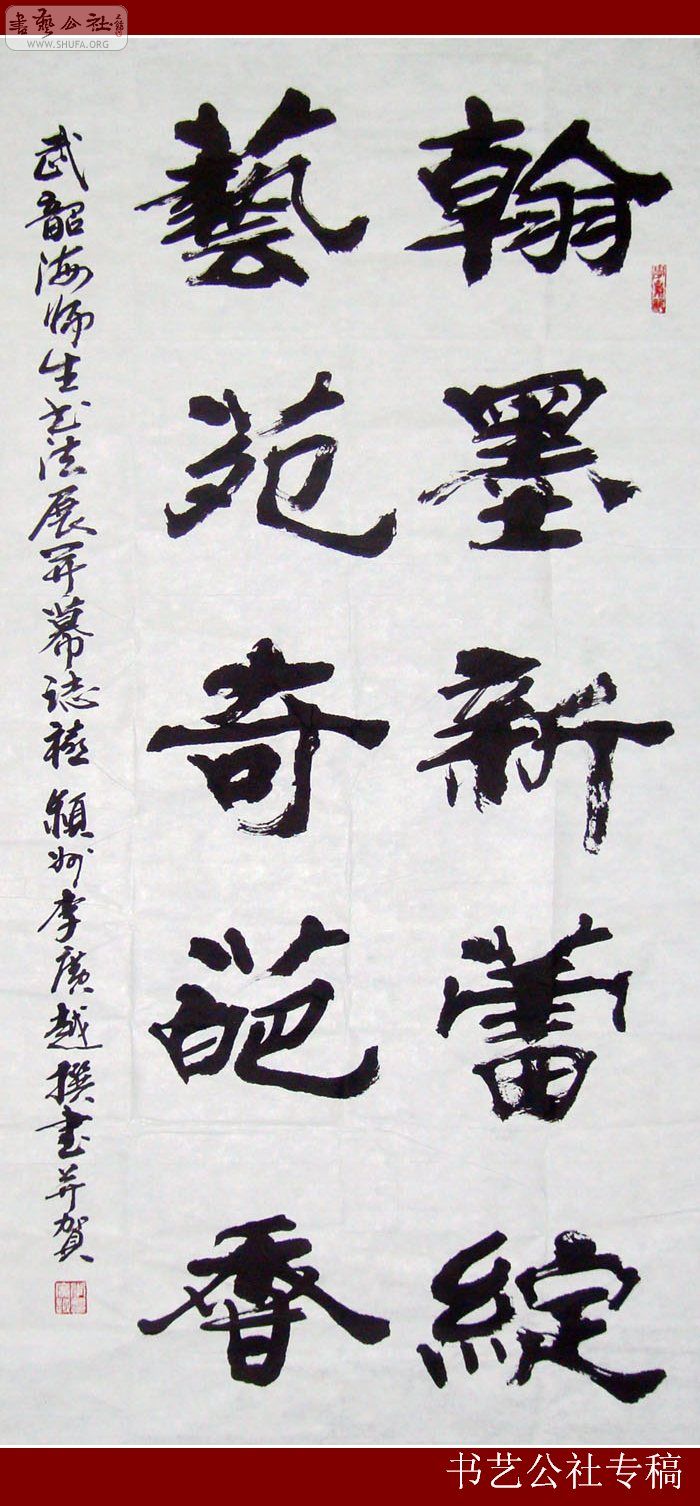 書藝公社
WWW.SHUFA.ORG
翰墨新蕾綻
藝苑奇葩香
武韶海师生书法展开幕誌禧 颍州李廣越撰書并贺
书艺公社专稿